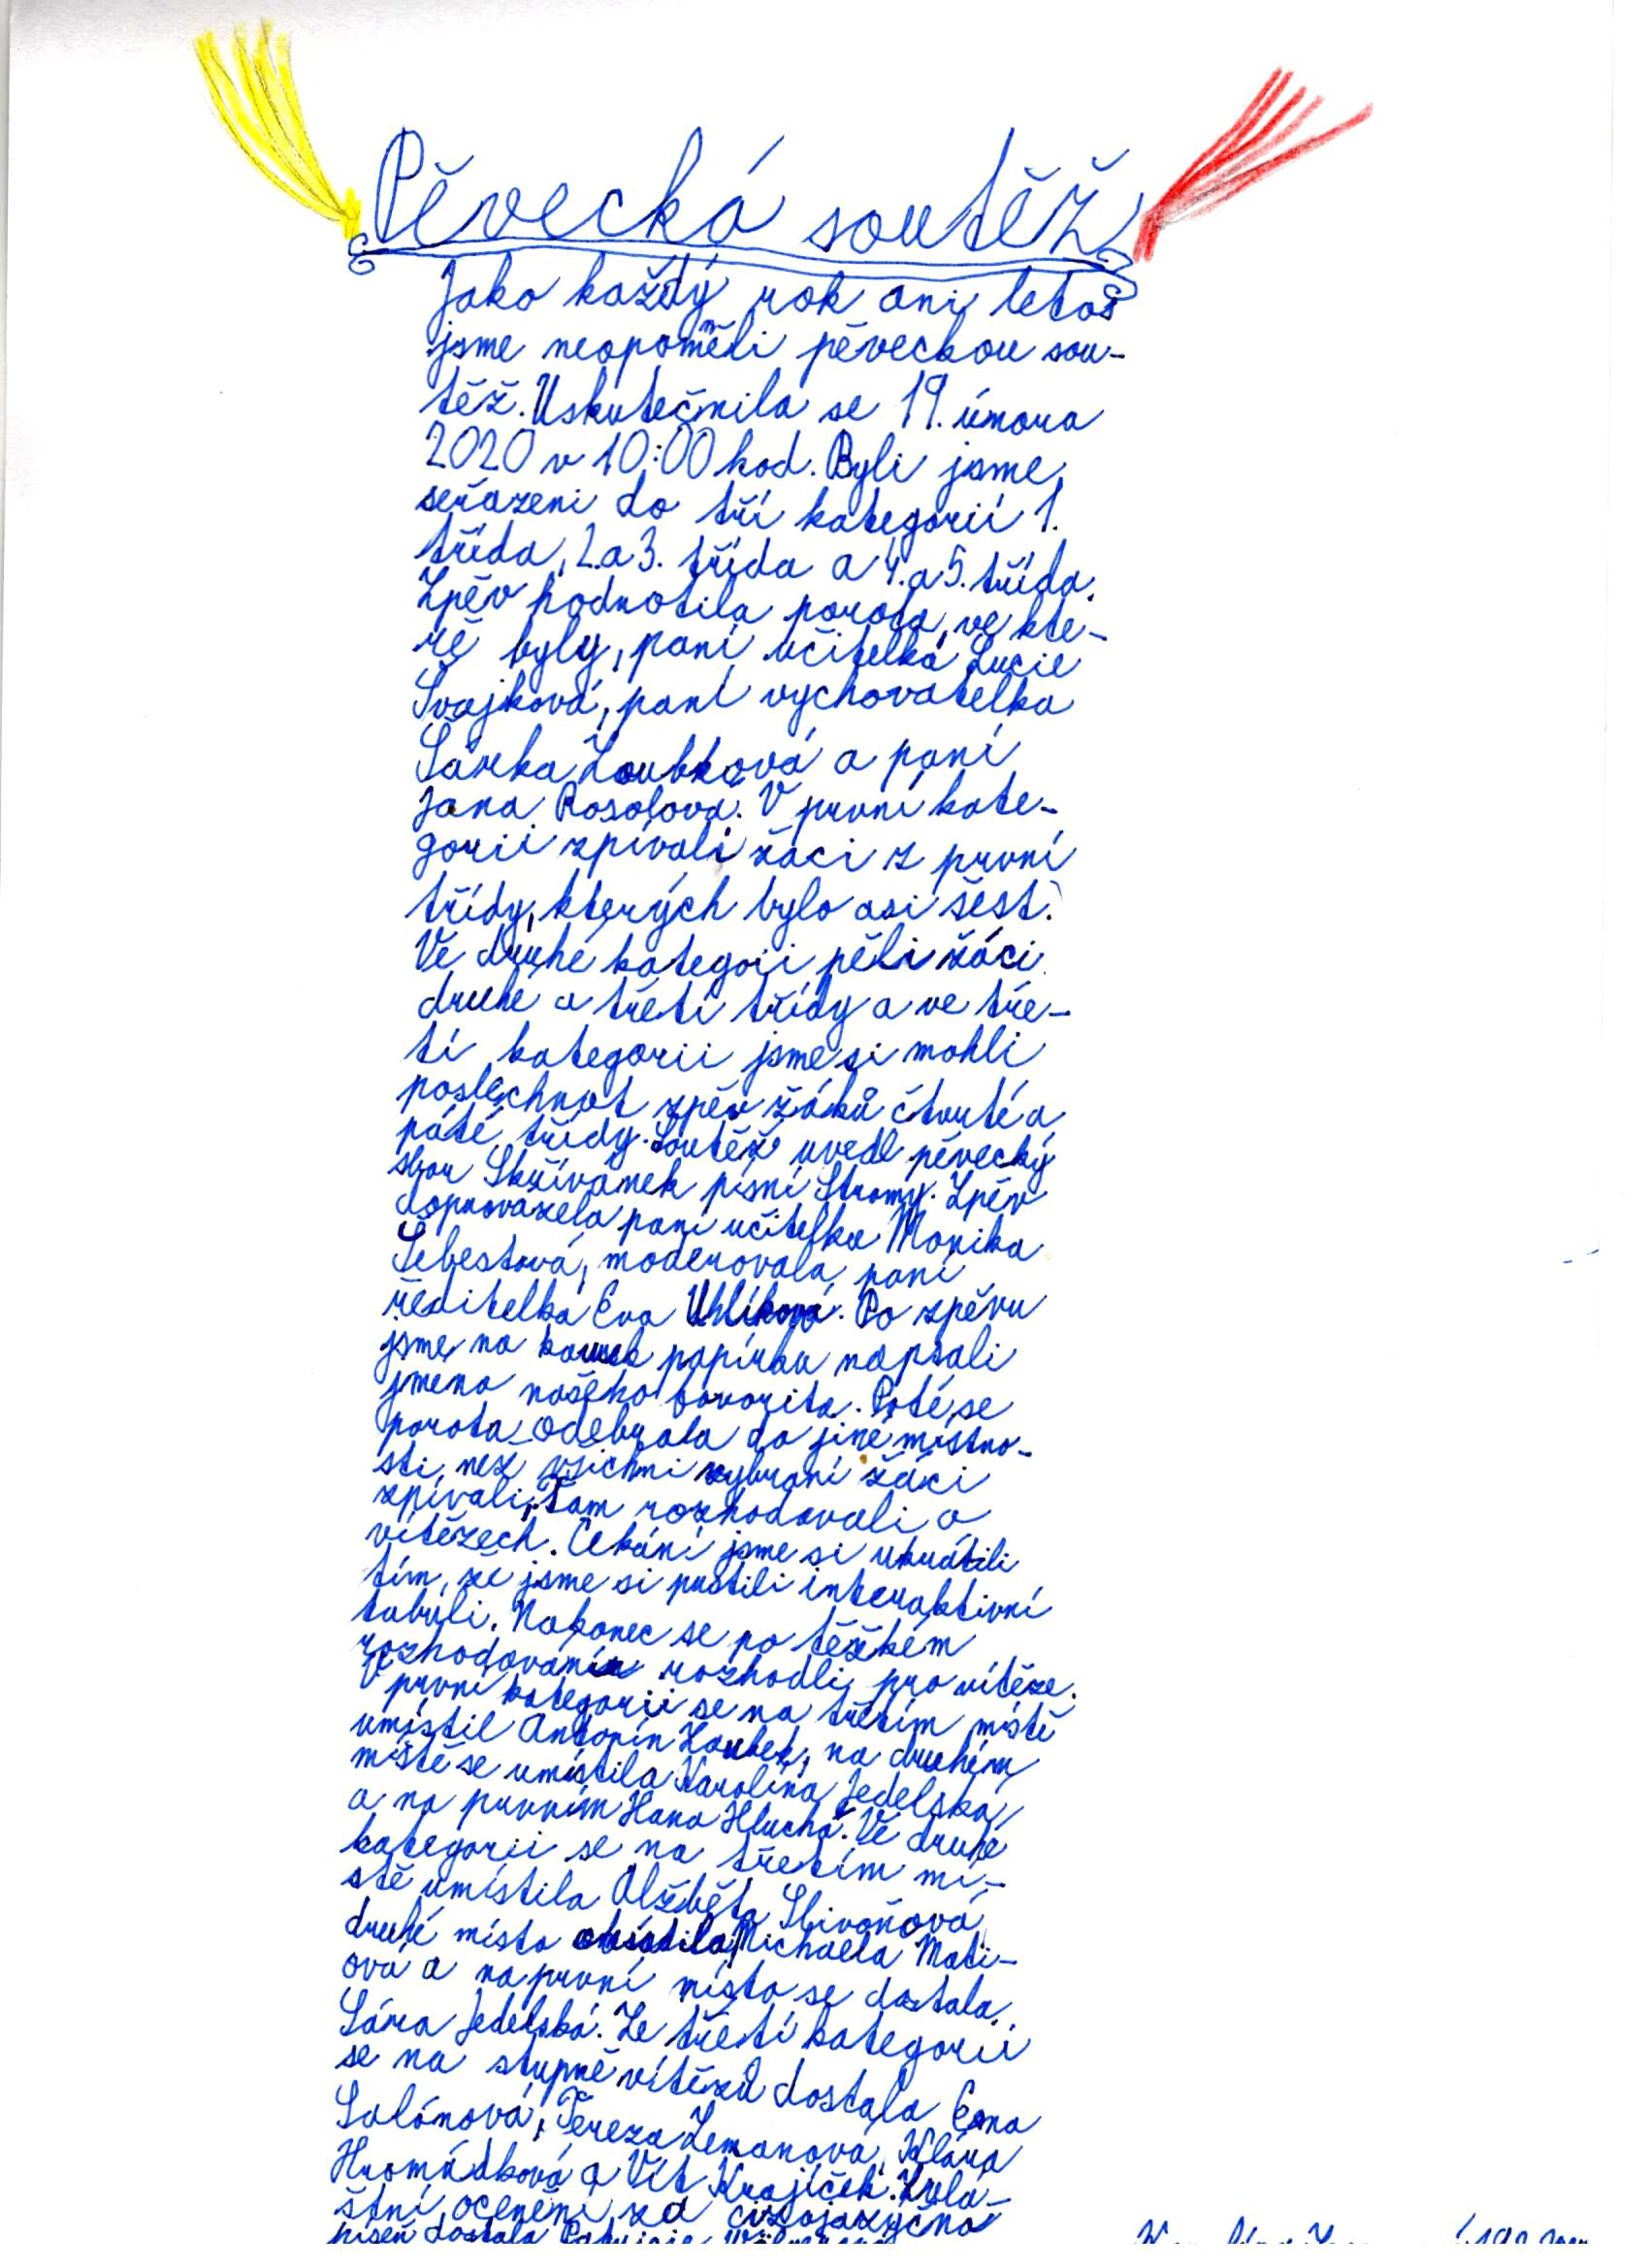 Pěvecká soutěž
Jako každý rok ani letos
jsme neopomněli pěveckou sou-
těž. Uskutečnila se 19. února
2020 v 10:00 hod. Byli jsme
seřazeni do tří kategorií 1.
třída, 2. a 3. třída a 4. a 5. třída.
Zpěv hodnotila porota, ve kte-
ré byly, paní učitelka Lucie
Švajková, paní vychovatelka
Šárka Zoubková a paní
Jana Rosolová. V první kate-
gorii zpívali žáci z první
třídy, kterých bylo asi šest.
Ve druhé kategorii pěli žáci
druhé a třetí třídy a ve tře-
tí kategorii jsme si mohli
poslechnout zpěv žáků čtvrté a
páté třídy. Soutěž uvedl pěvecký
sbor Skřivánek písní Stromy. Zpěv
doprovázela paní učitelka Monika
Šebestová, moderovala paní
ředitelka Eva Uhlíková. Po zpěvu
jsme na kousek papírku napsali
jmena našeho favorita. Poté se
porota odebrala do jiné místno-
sti, než všichni vybraní žáci
zpívali. Tam rozhodovali o
vítězech. Čekání jsme si ukrátili
tím, že jsme si pustili interaktivní
tabuli. Nakonec se po těžkém
rozhodování rozhodli pro vítěze.
V první kategorii se na třetím místě
umístil Antonín Zoubek, na druhém
místě se umístila Karolína Jedelská
a na prvním Hana Hluchá. Ve druhé
kategorii se na třetím mí-
stě umístila Alžběta Slivoňová,
druhé místo Michaela Mati-
ová a na první místo se dostala
Sára Jedelská. Ze třetí kategorii
se na stupně vítězů dostala Ema
Salónová, Tereza Zemanová, Klára
Hromádková a Vít Krajíček. Zvlá-
štní ocenění za cizojazyčnou
píseň dostala